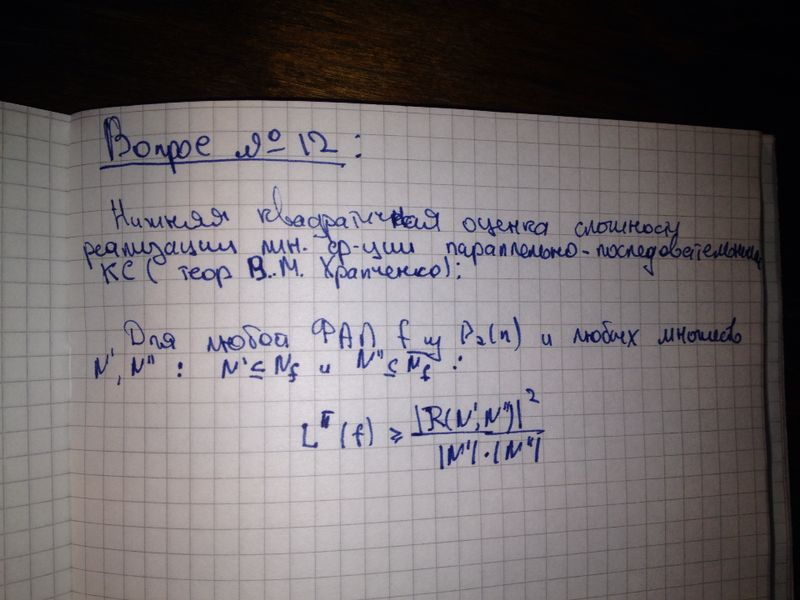 Вопрос № 12:
Нижняя квадратичная оценка сложносу
реализации лин. ср-ции параллельно-последовательными
КС (теор В.М. Храпченко):
Для любой ФАЛ f из P₂(n) и любых множеств
N', N'': N' ⊆ N_f и N'' ⊆ N̅_f :
L^π(f) ≥ |R(N', N'')|² / |N'|·|N''|